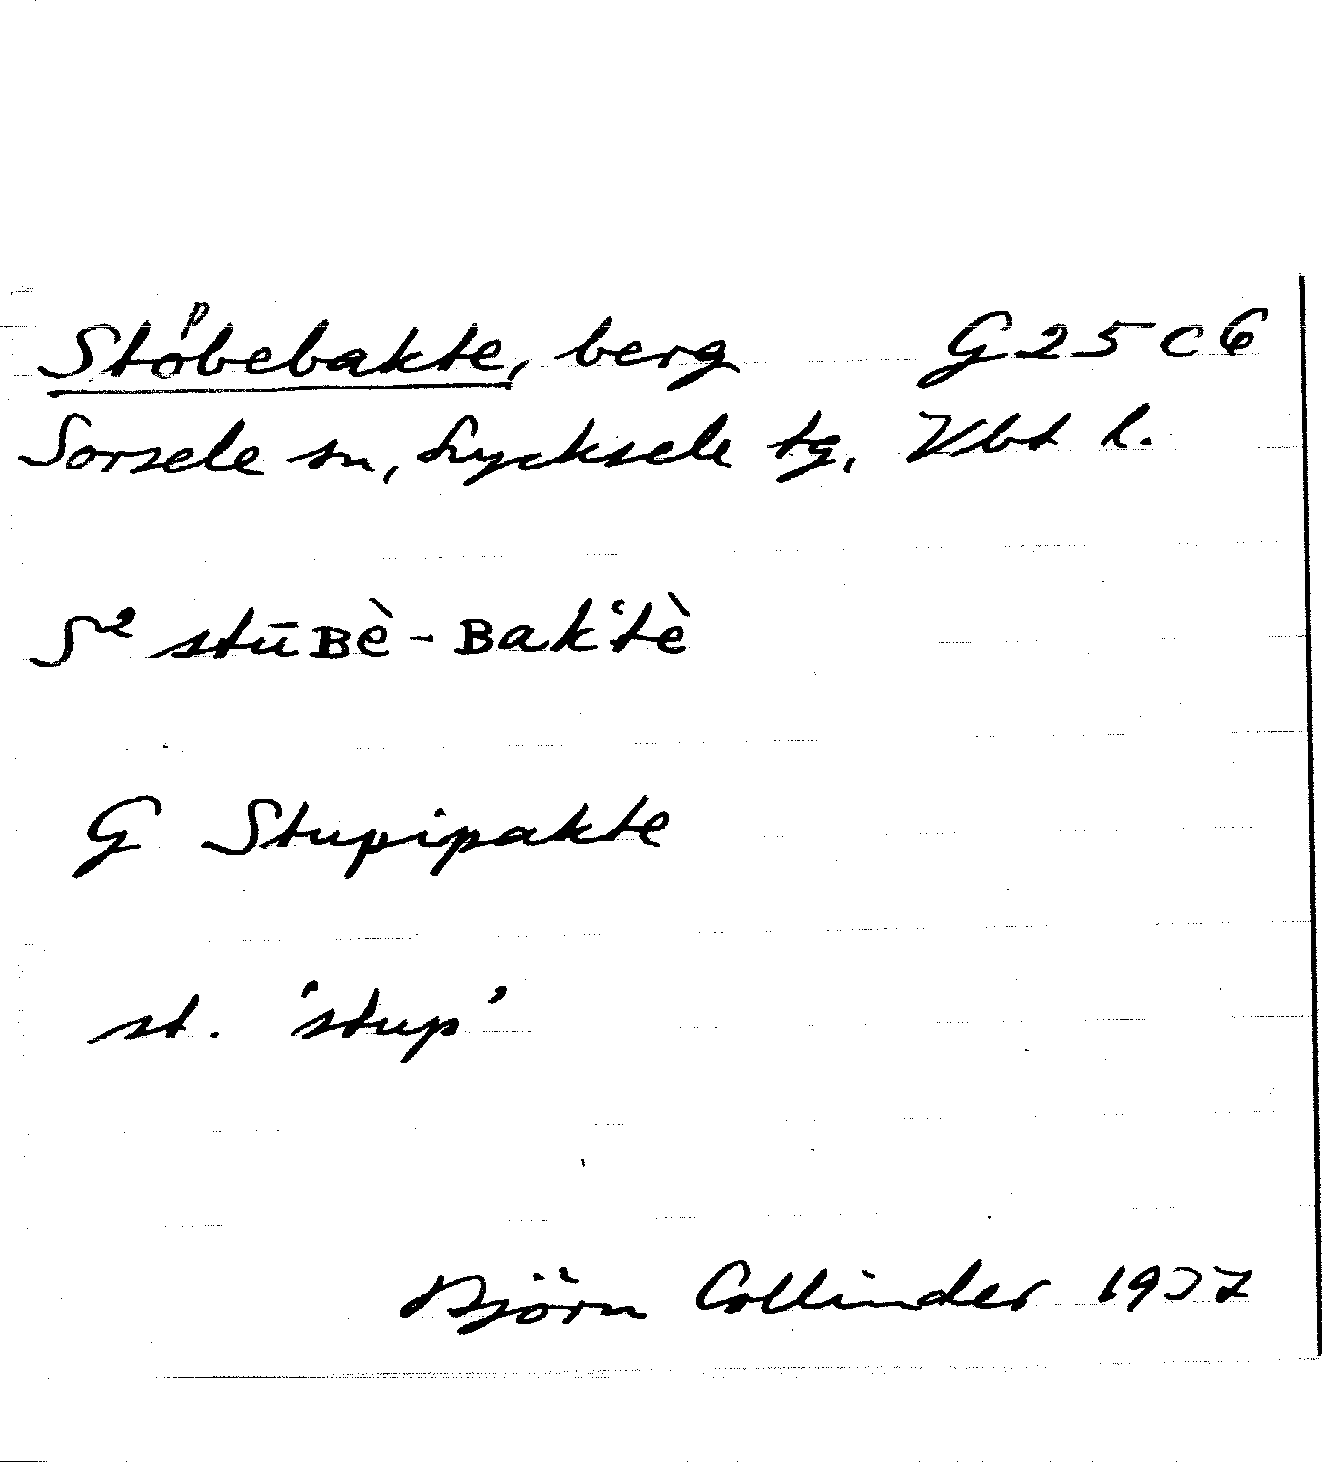 Stöpbebakte, berg G25c6
Sorsele sn, Lycksele tg, Vbt l.
S² stūʙè-ʙakʻtè
G Stupipakte
st. ‘stup’
Björn Collinder 1977